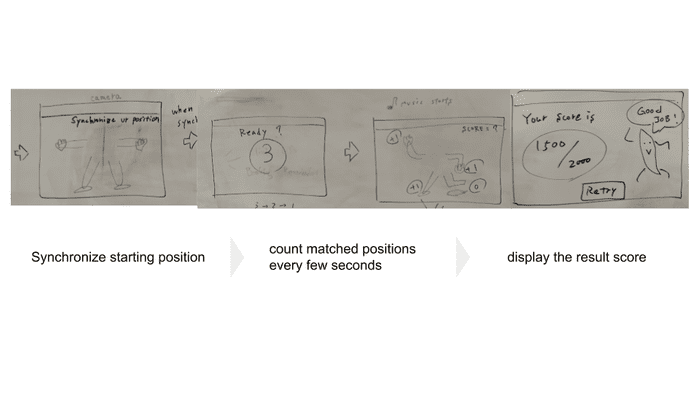 camera
Synchronize ur position
when
sync!
Ready ?
3
3 → 2 → 1
♫ music starts
SCORE : ?
+1
+1
+1
0
Your Score is
1500/2000
Good
JOB!
Retry
Synchronize starting position
count matched positions
every few seconds
display the result score